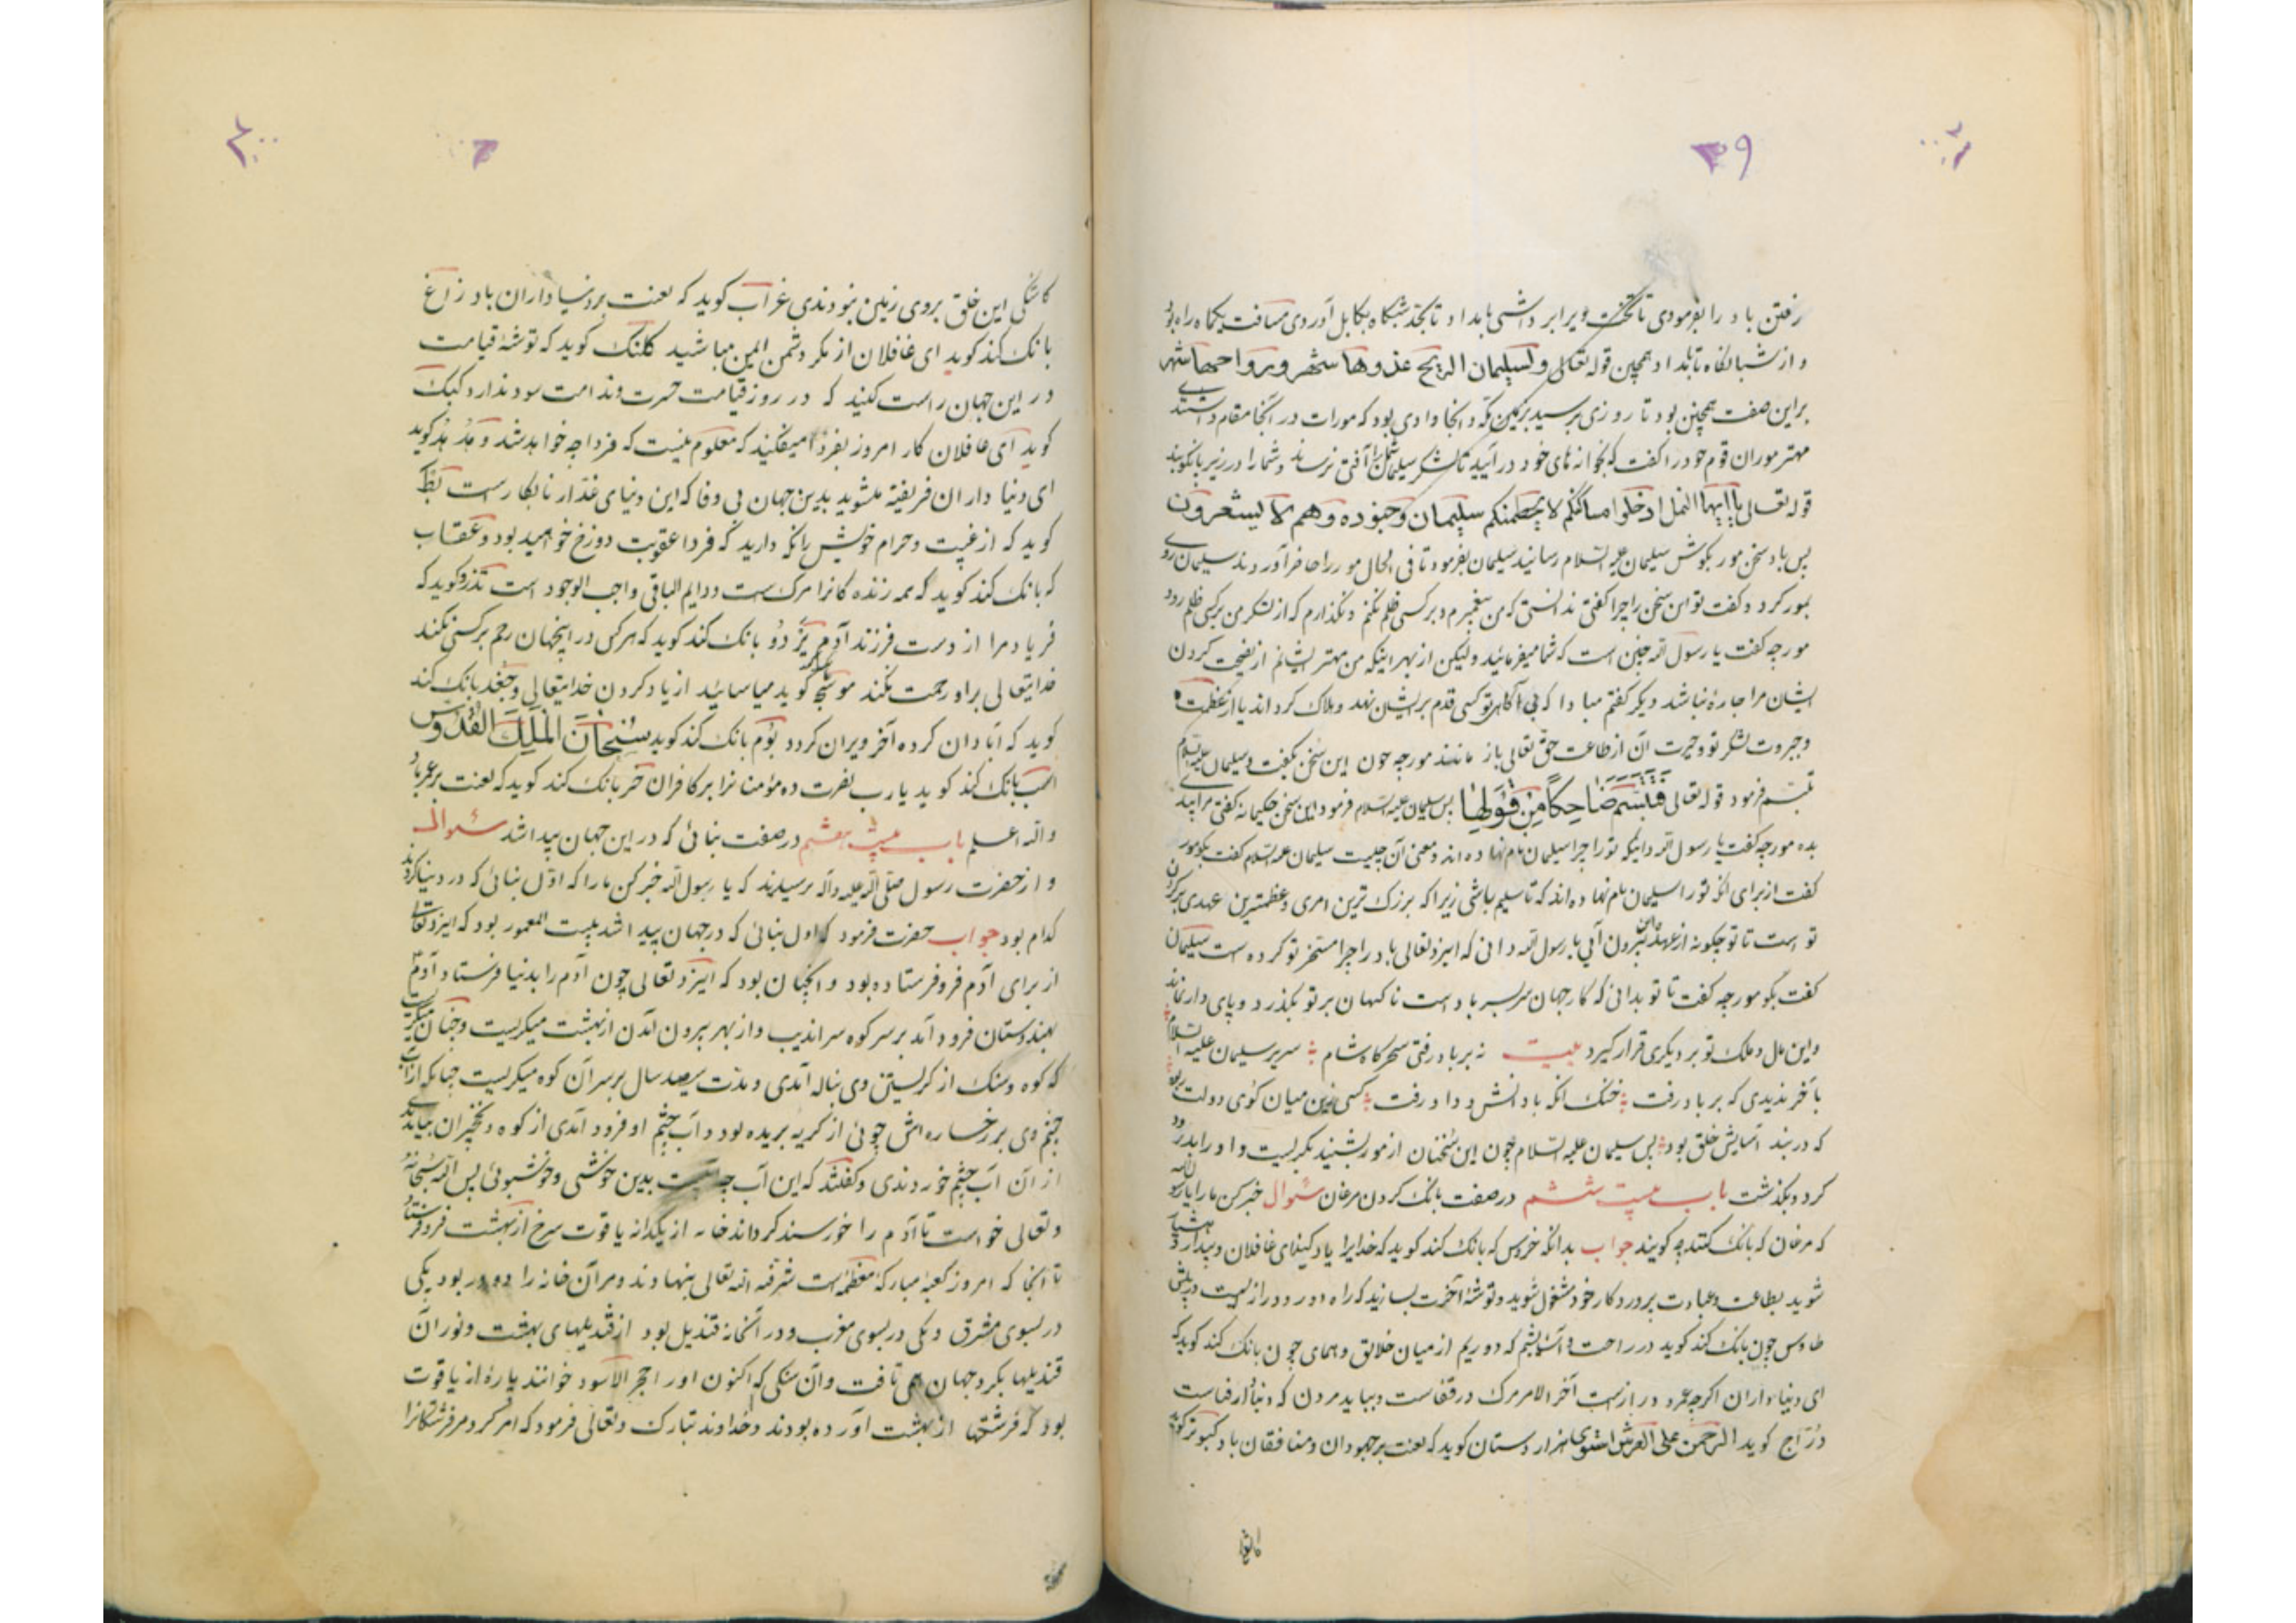 ۳۹
رفتن باد را بفرمودی تا تخت ویرا برداشتی بامداد تا بحد شبنکاه بکابل آوردی مسافت یکماه راه بود
و از شبانکاه تا بامداد همچنین قوله تعالی ولسلیمان الریح غدوها شهر ورواحها شهر
براین صفت همچنین بود تا روزی برسید بزمین که و آنجا وادی بود که مورات در آنجا مقام داشتندی
مهتر موران قوم خود را کفت که بخوانه های خود درآیید تا لشکر سلیمان شما را آفتی نرساند و شما را در زیر پا نکوبند
قوله تعالی یا ایها النمل ادخلوا مساکنکم لا یحطمنکم سلیمان وجنوده وهم لا یشعرون
پس باد سخن مور بکوش سلیمان علیه السلام رسانید سلیمان بفرمود تا فی الحال مور را حاضر آوردند سلیمان روی
بمور کرد و کفت تو این سخن را چرا کفتی ندانستی که من پیغمبرم و بر کسی ظلم نکنم و نکذارم که از لشکر من بر کسی ظلم رود
مورچه کفت یا رسول الله چنین است که شما میفرمائید ولیکن از بهر اینکه من مهتر ایشانم از نصیحت کردن
ایشان مرا چاره نباشد دیگر کفتم مبادا که بی آکاهی تو کسی قدم بر ایشان نهد و هلاک کرداند یا از عظمت
و جبروت لشکر تو و حیرت آن از طاعت حق تعالی باز مانند مورچه چون این سخن بکفت سلیمان علیه السلام
تبسم فرمود قوله تعالی فتبسم ضاحکا من قولها پس سلیمان علیه السلام فرمود این سخن حکیمانه کفتی مرا پندی
بده مورچه کفت یا رسول الله دانیکه تو را چرا سلیمان نام نهاده اند و معنی آن چیست سلیمان علیه السلام کفت بکو مور
کفت از برای آنکه تو را سلیمان نام نهاده اند که تا سلیم باشی زیرا که بزرک ترین امری و عظیمترین عهدی بر کردن
تو است تا تو چکونه از عهده این بیرون آئی یا رسول الله دانی که ایزد تعالی باد را چرا مسخر تو کرده است سلیمان
کفت بکو مورچه کفت تا تو بدانی که کار جهان سربسر باد است ناکهان بر تو بکذرد و پای دار نماند
واین مال و ملک تو بر دیکری قرار کیرد بیت نه بر باد رفتی سحرکاه شام سریر سلیمان علیه السلام
بآخر ندیدی که بر باد رفت خنک آنکه با دانش و داد رفت کسی زین میان کوی دولت ربود
که در بند آسایش خلق بود پس سلیمان علیه السلام چون این سخنان از مور بشنید بکریست و او را بدرود
کرد و بکذشت باب بیست ششم در صفت بانک کردن مرغان سئوال خبر کن ما را یا رسول الله
که مرغان که بانک کنند چه کویند جواب بدانکه خروس که بانک کند کوید که خدایرا یاد کنید ای غافلان و بیدار و هشیار
شوید بطاعت و عبادت پروردکار خود مشغول شوید و توشهٔ آخرت بسازید که راه دور و دراز است در پیش
طاوس چون بانک کند کوید در راحت و آسایشم که دوریم از میان خلائق و همای چون بانک کند کوید که
ای دنیاداران اکرچه عمر دراز است آخر الامر مرک در قفاست و بباید مردن که دنیا دار فناست
دراج کوید الرحمن علی العرش استوی هزار دستان کوید که لعنت بر جهودان و منافقان باد کبوتر کوید
کاشکی این خلق بروی زمین نبودندی غراب کوید که لعنت بر دنیاداران باد زاغ
بانک کند کوید ای غافلان از مکر دشمن ایمن مباشید کلنک کوید که توشهٔ قیامت
در این جهان راست کنید که در روز قیامت حسرت و ندامت سود ندارد کبک
کوید ای غافلان کار امروز بفردا میفکنید که معلوم نیست که فردا چه خواهد شد و هد هد کوید
ای دنیا داران فریفته مشوید بدین جهان بی وفا که این دنیای غدار نابکار است بط
کوید که از غیبت و حرام خویش را نکه دارید که فردا عقوبت دوزخ خواهید بود و عقاب
که بانک کند کوید که همه زنده کانرا مرک است و دایم الباقی واجب الوجود است تذرو کوید که
فریاد مرا از دست فرزند آدم بانک کند کوید که هرکس در اینجهان رحم بر کسی نکند
خدایتعالی بر او رحمت نکند کوید میاسائید از یاد کردن خدایتعالی و جغد بانک کند
کوید که آبادان کرده آخر ویران کردد بوم بانک کند کوید سبحان الملک القدوس
اسب بانک کند کوید یا رب نصرت ده مؤمنانرا بر کافران خر بانک کند کوید که لعنت بر باد
والله اعلم باب بیست هفتم در صفت بنائی که در این جهان پیدا شد سئوال
و از حضرت رسول صلی الله علیه وآله پرسیدند که یا رسول الله خبر کن ما را که اول بنائی که در دنیا کردند
کدام بود جواب حضرت فرمود که اول بنائی که در جهان پیدا شد بیت المعمور بود که ایزد تعالی
از برای آدم فرو فرستاده بود و آنچنان بود که ایزد تعالی چون آدم را بدنیا فرستاد آدم
بهندوستان فرود آمد بر سر کوه سراندیب و از بهر بیرون آمدن از بهشت میکریست و چنان میکریست
که کوه و سنک از کریستن وی بناله آمدی و مدت سیصد سال بر سر آن کوه میکریست چنانکه از آب
چشم وی بر رخساره اش جوئی از کریه بریده بود و آب چشم او فرود آمدی از کوه و نخچیران بیامدندی
از آن آب چشم خوردندی و کفتند که این آب چیست بدین خوشی و خوشبوئی پس الله سبحانه
وتعالی خواست تا آدم را خورسند کرداند خانه از یکدانه یاقوت سرخ از بهشت فرو فرستاد
تا آنجا که امروز کعبهٔ مبارکهٔ معظمه است شرفه الله تعالی بنهادند و مر آن خانه را دو در بود یکی
در بسوی مشرق و یکی در بسوی مغرب و در آنخانه قندیل بود از قندیلهای بهشت و نور آن
قندیلها بکرد جهان همی تافت و آن سنکی که اکنون او را حجر الاسود خوانند پارهٔ از یاقوت
بود که فرشتها از بهشت آورده بودند و خداوند تبارک وتعالی فرمود که امر کرد مر فرشتکانرا